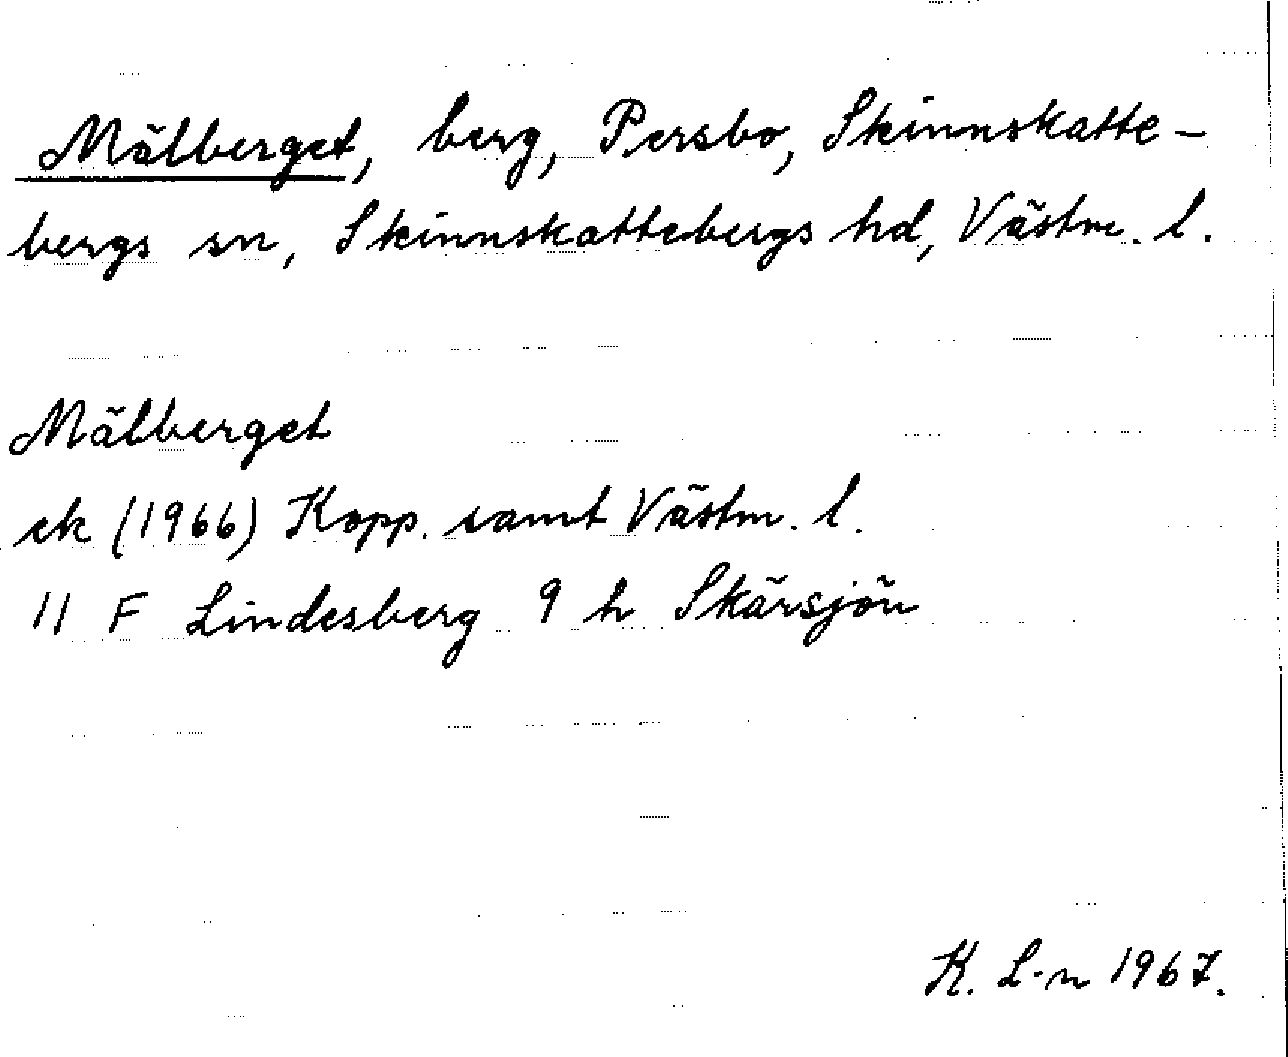 Mälberget, berg, Persbo, Skinnskatte-
bergs sn, Skinnskattebergs hd, Västm. l.
Mälberget
ek (1966) Kopp. samt Västm. l.
11 F Lindesberg 9 h Skärsjön
K. L-n 1967.